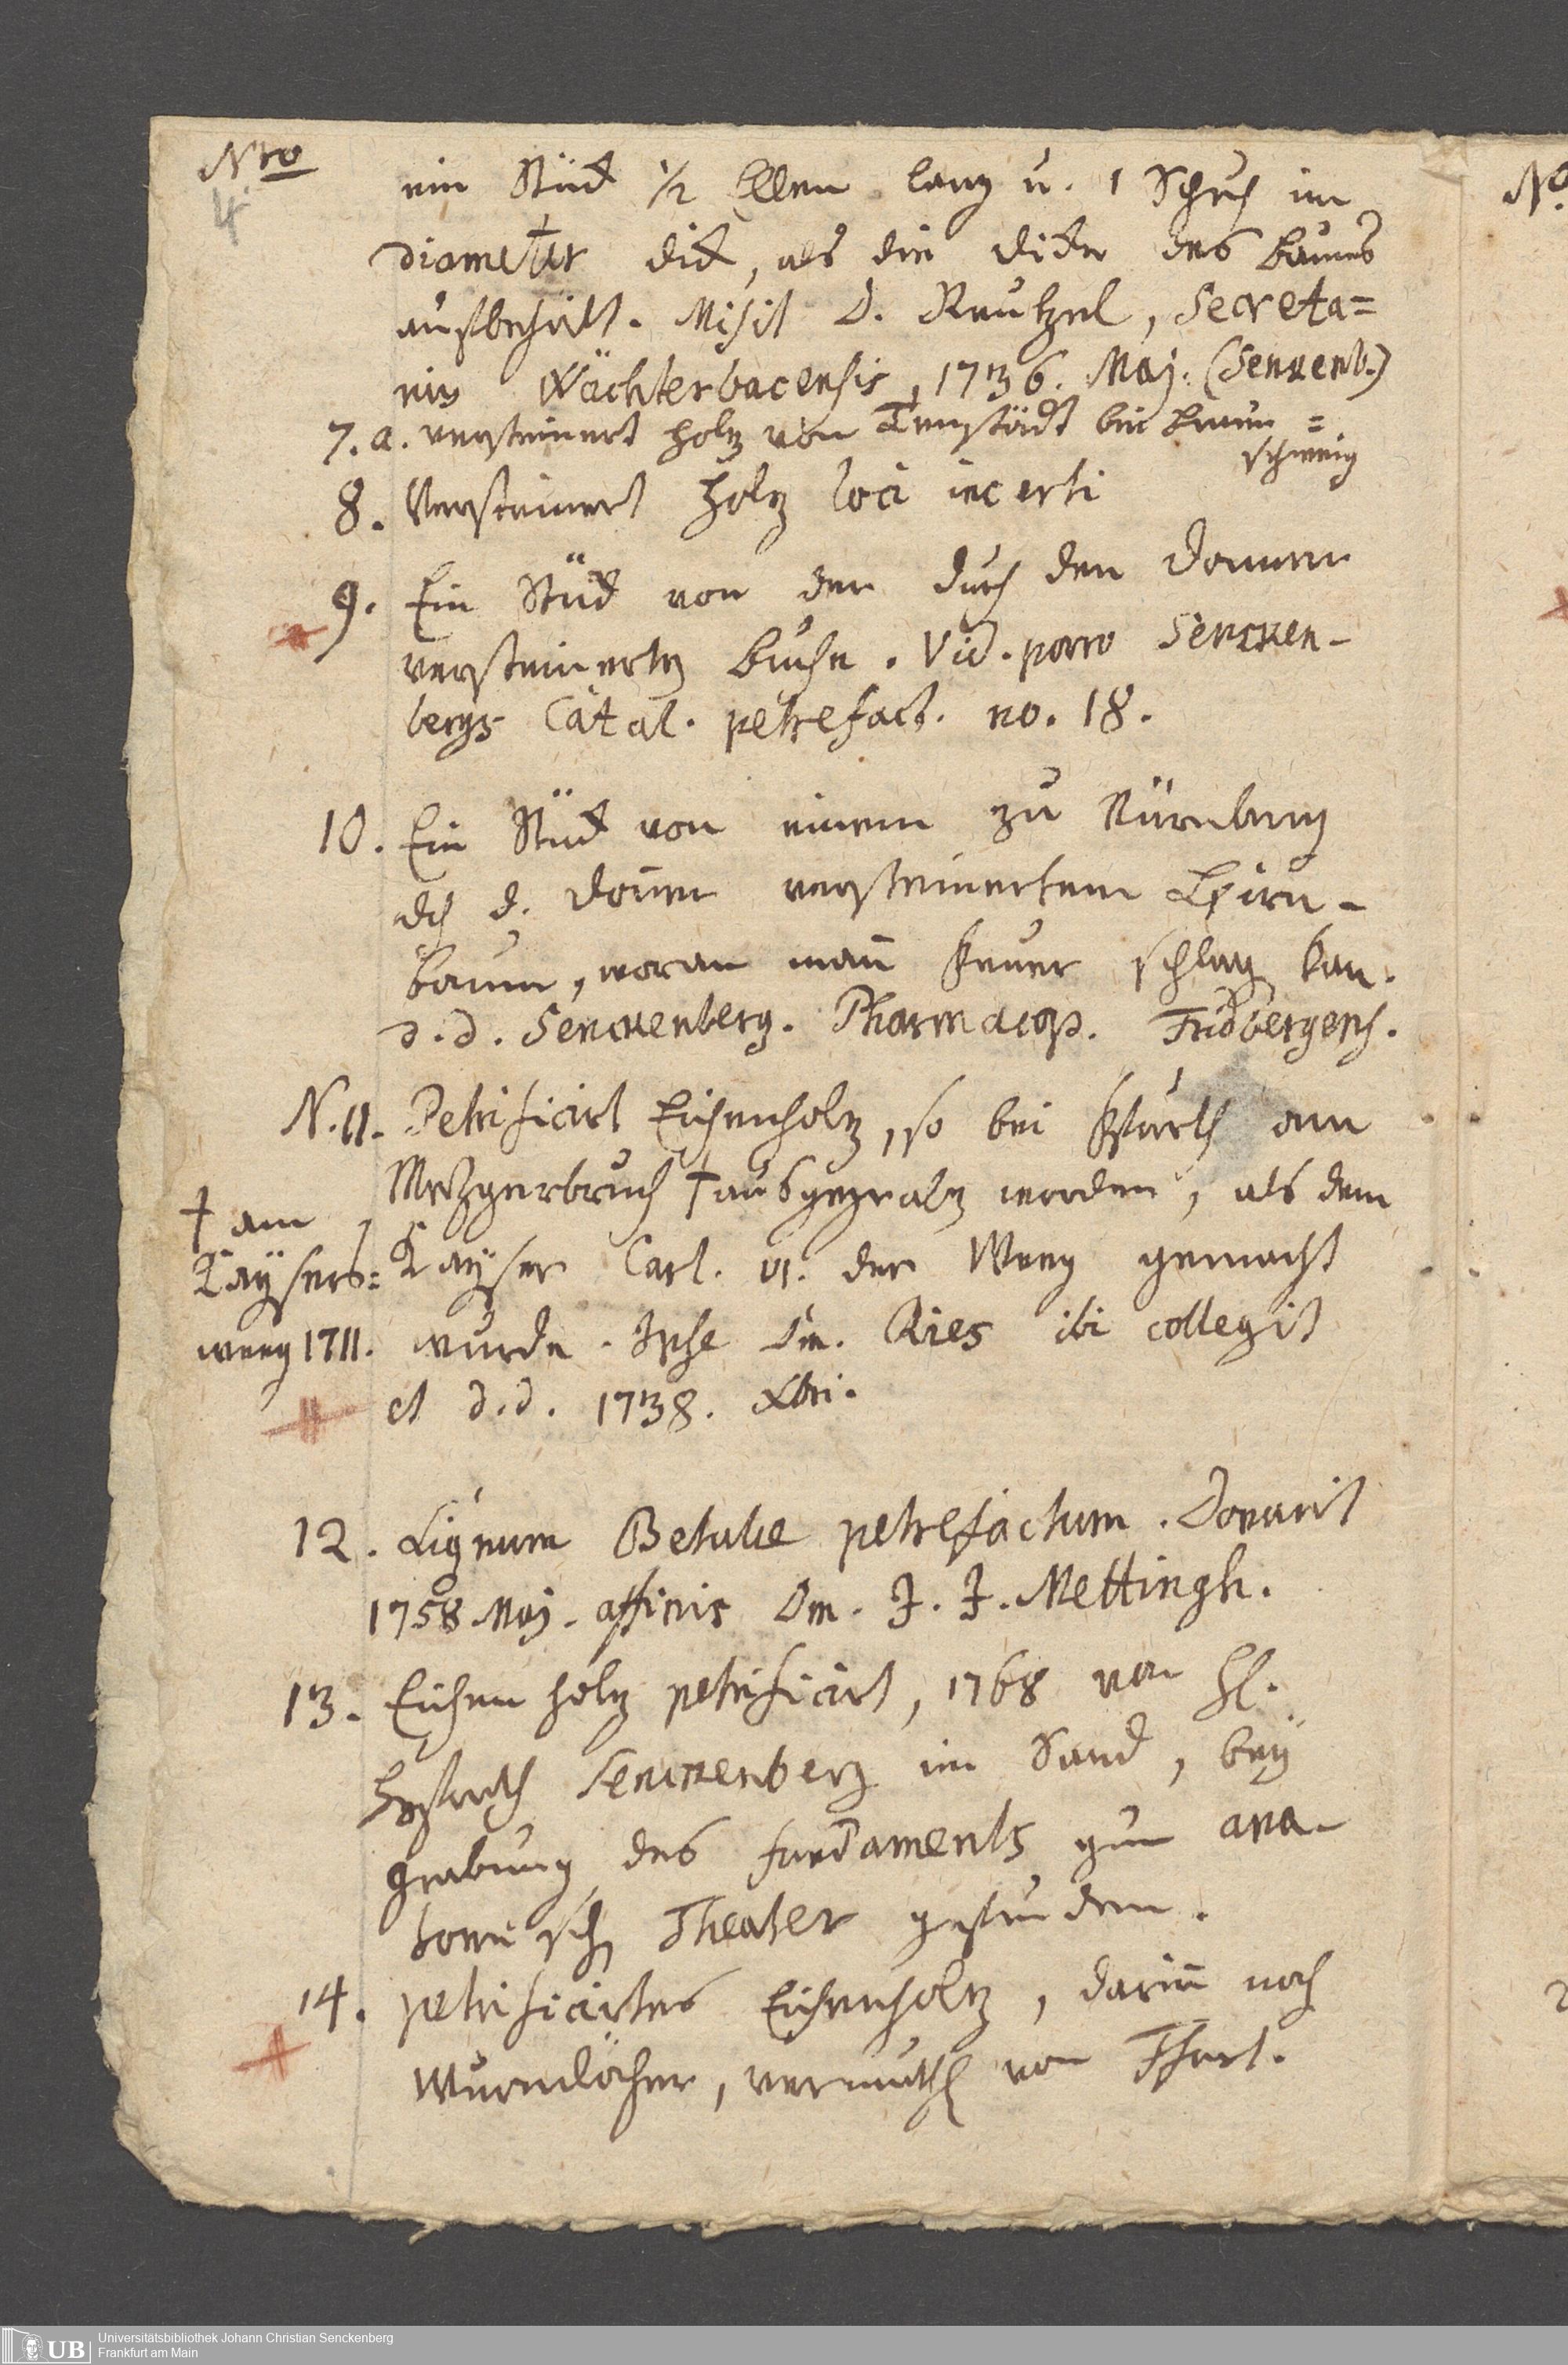 Nro
4
ein Stück 1/2 Ellen lang u. 1 Schuh im
diameter dick, als die dicke des baumes
ausbehält. Misit D. Reutzel, Secreta=
rius Wächterbacensis, 1736. Maj. (Senckenb.)
7. a. versteinert holz von Tenstädt bei braun=
schweig
8. Versteinert holz loci incerti
9. Ein Stück von der durch den Donner
versteinerten buche. Vid. porro Sencken-
bergs Catal. petrefact. no. 18.
10. Ein Stück von einem zu Nürnberg
dch d. Donner versteinertem Birn-
baum, woran man feuer schlagen kan.
d. d. Senckenberg. Pharmacop. Fridbergens.
N. 11. Petrificirt Eichenholz, so bei Fürth am
Metzgerbruch † ausgegraben worden, als dem
† am
Kaysers=
weeg 1711.
Kayser Carl. VI. der Weeg gemacht
wurde. Ipse Dn. Ries ibi collegit
et d. d. 1738. Xbri.
12. Lignum Betulae petrefactum. Donavit
1758 Maj. affinis Dn. J. J. Mettingh.
13. Eichen holz petrificirt, 1768 von H.
Hofrath Senckenberg im Sand, bey
grabung des fundaments zum ana-
tomischen Theater gefunden.
14. petrificirtes Eichenholz, darinn noch
Wurmlöcher, vermuthl. von
Universitätsbibliothek Johann Christian Senckenberg
Frankfurt am Main
UB